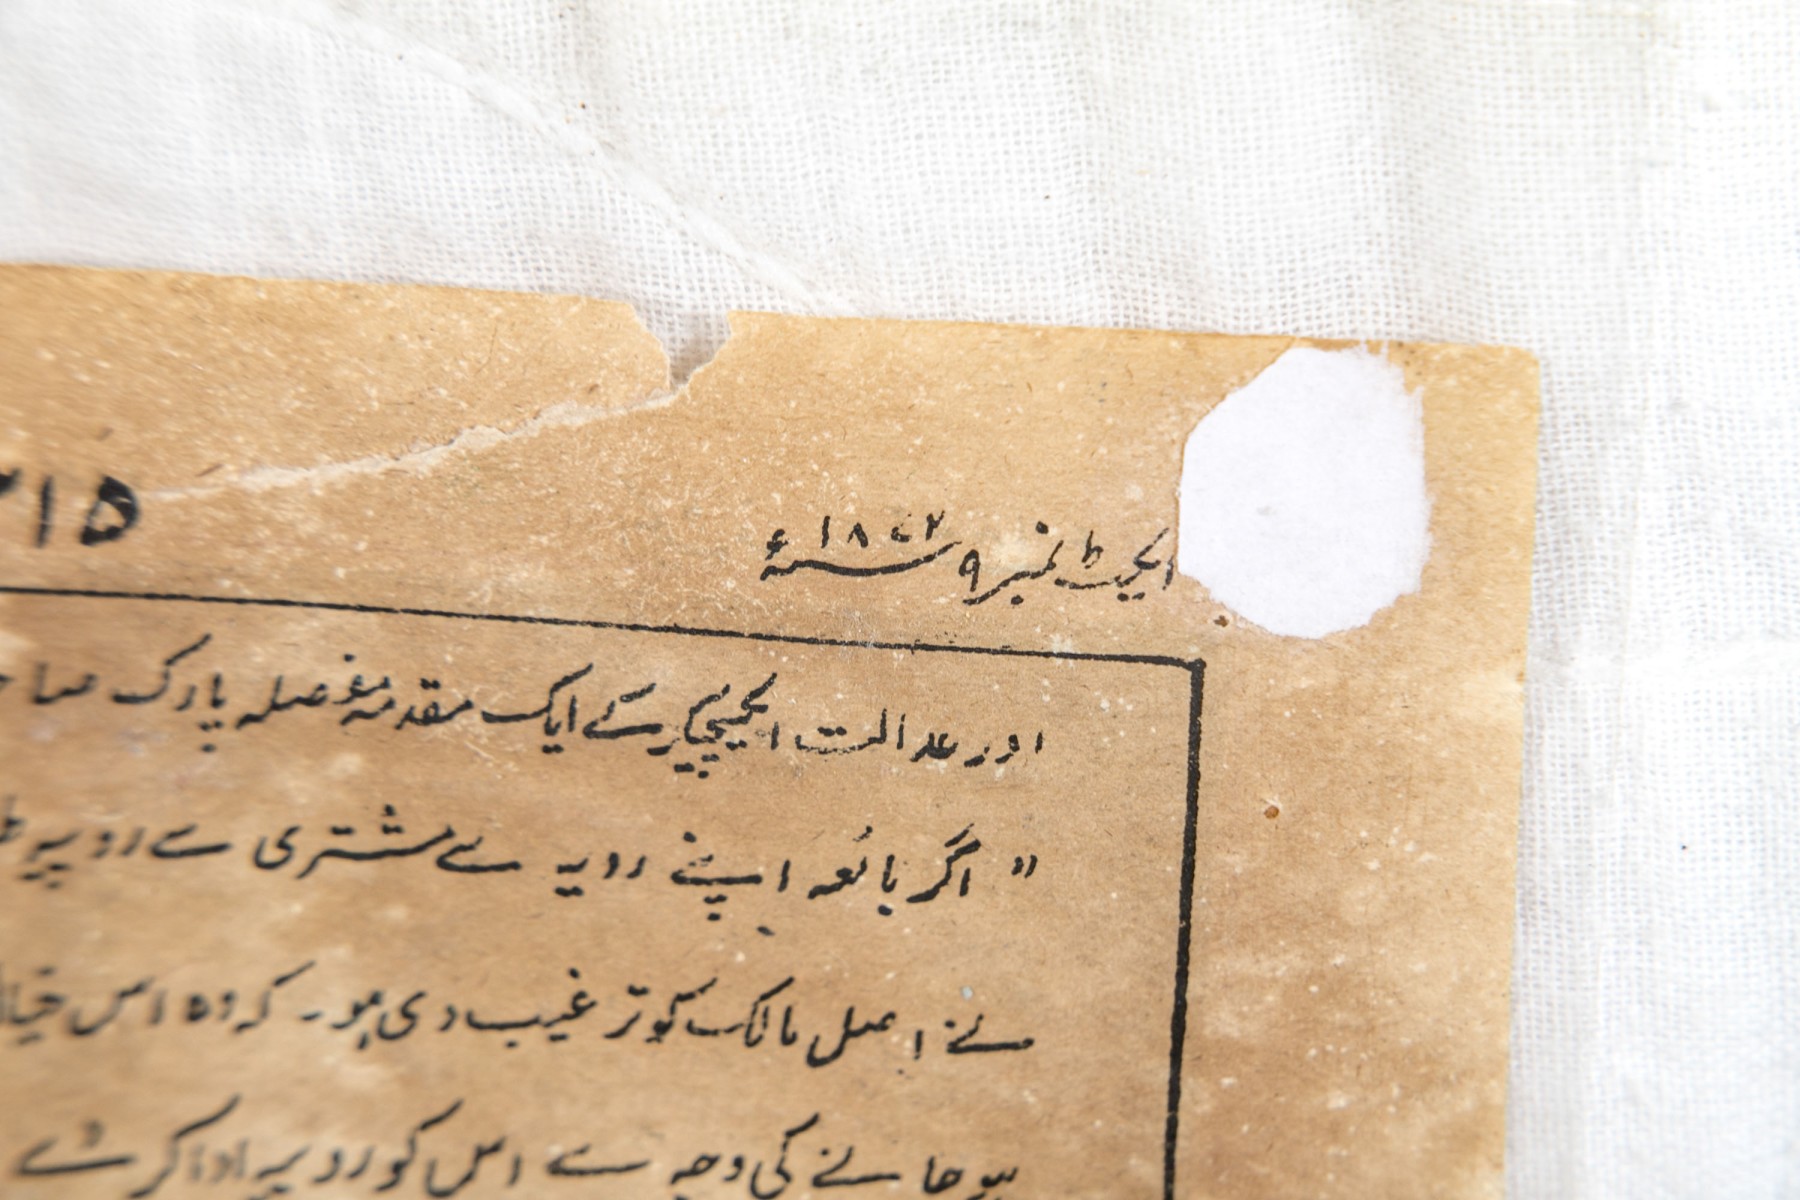 ایکٹ نمبر ۹ سنہ ۱۸۷۲ء
۲۱۵
اور عدالت ایکسچیکر کے ایک مقدمہ مفصلہ پارک صا
" اگر بائعہ اپنے رویہ سے مشتری سے روپیہ
نے اصل مالک کو ترغیب دی ہو۔ کہ وہ اس خیال
ہو جانے کی وجہ سے اس کو روپیہ ادا کرنے